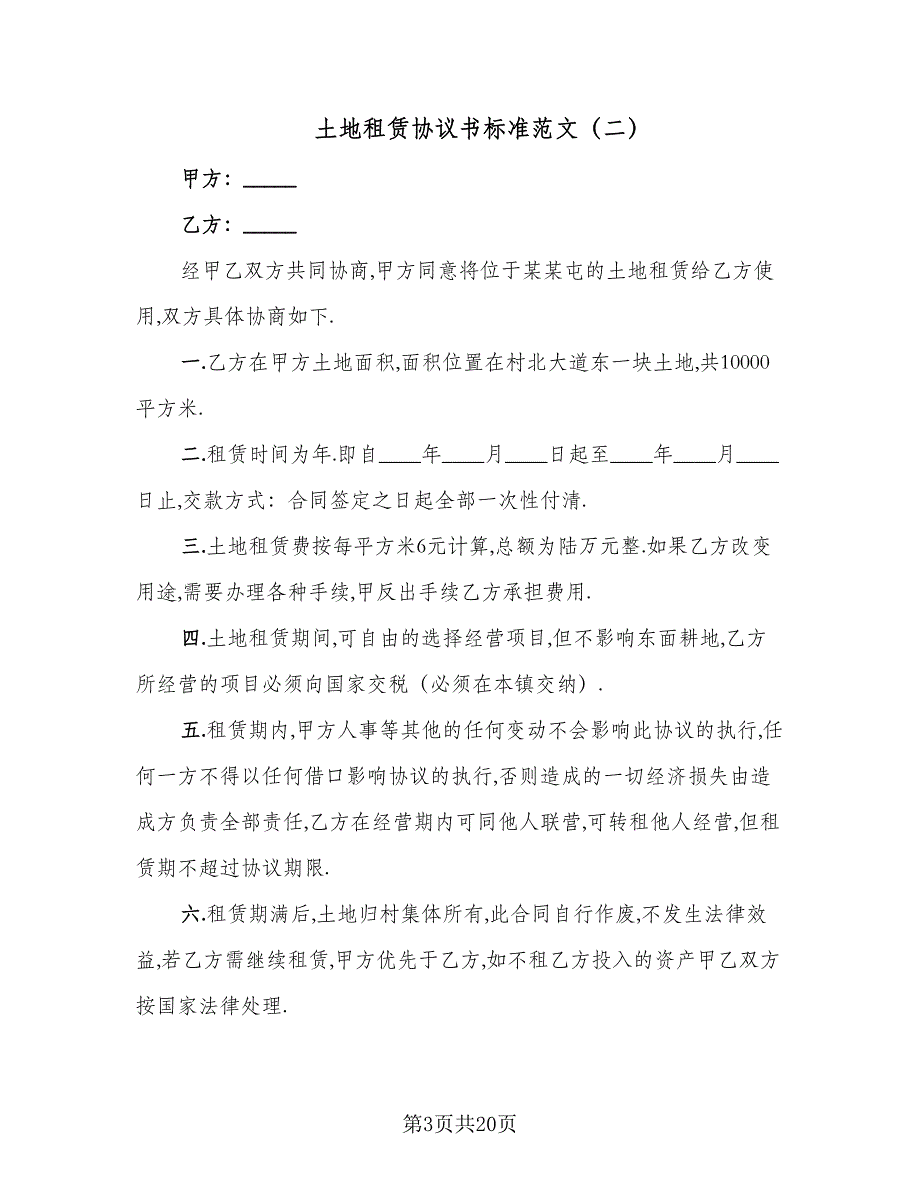 土地租赁协议书标准范文（二）
甲方：_____
乙方：_____
经甲乙双方共同协商,甲方同意将位于某某屯的土地租赁给乙方使
用,双方具体协商如下.
一.乙方在甲方土地面积,面积位置在村北大道东一块土地,共10000
平方米.
二.租赁时间为年.即自____年____月____日起至____年____月____
日止,交款方式：合同签定之日起全部一次性付清.
三.土地租赁费按每平方米6元计算,总额为陆万元整.如果乙方改变
用途,需要办理各种手续,甲反出手续乙方承担费用.
四.土地租赁期间,可自由的选择经营项目,但不影响东面耕地,乙方
所经营的项目必须向国家交税（必须在本镇交纳）.
五.租赁期内,甲方人事等其他的任何变动不会影响此协议的执行,任
何一方不得以任何借口影响协议的执行,否则造成的一切经济损失由造
成方负责全部责任,乙方在经营期内可同他人联营,可转租他人经营,但租
赁期不超过协议期限.
六.租赁期满后,土地归村集体所有,此合同自行作废,不发生法律效
益,若乙方需继续租赁,甲方优先于乙方,如不租乙方投入的资产甲乙双方
按国家法律处理.
第3页共20页